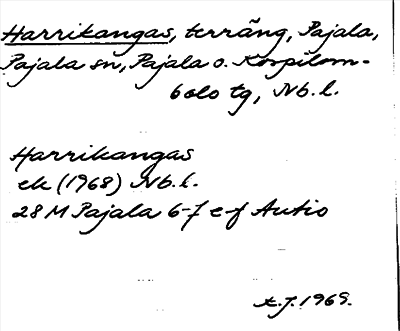 Harrikangas, terräng, Pajala,
Pajala sn, Pajala o. Korpilom-
bolo tg, Nb. l.
Harrikangas
ek (1968) Nb. l.
28 M Pajala 6-7 e-f Autio
t.J. 1969.